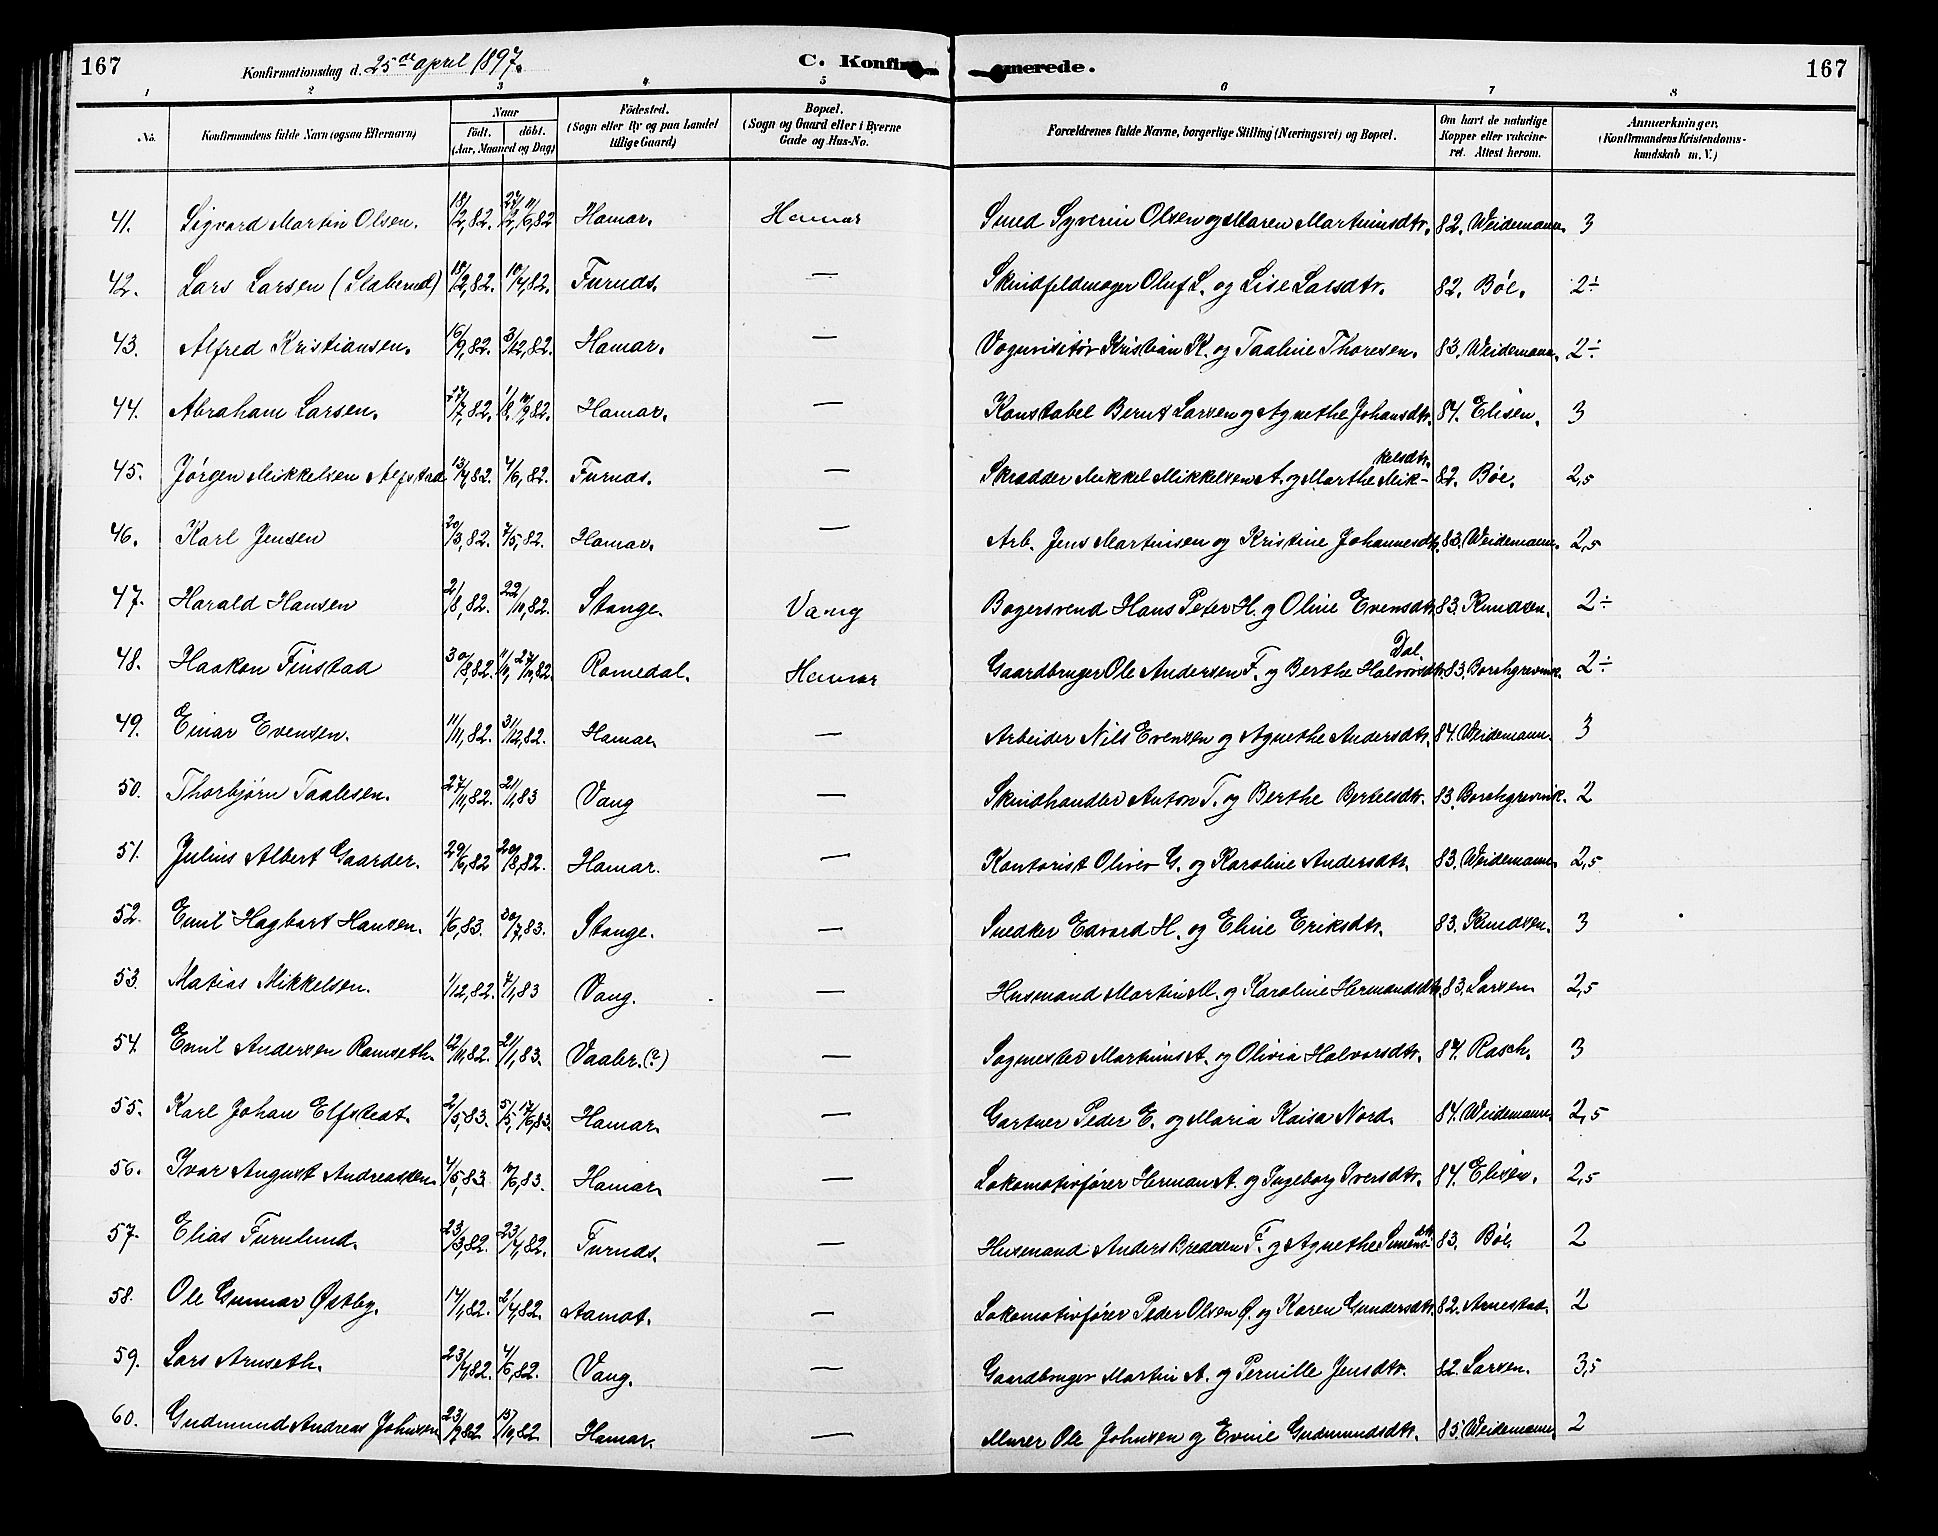 167
Konfirmationsdag d. 25de april 1897.
C. Konfir
merede.
167
1 2 3 4 5 6 7 8
No. Konfirmandens fulde Navn (ogsaa Efternavn) Naar født. døbt. (Aar, Maaned og Dag) Fødested. (Sogn eller By og paa Landet tillige Gaard) Bopæl. (Sogn og Gaard eller i Byerne Gade og Hus-No. Forældrenes fulde Navne, borgerlige Stilling (Næringsvei) og Bopæl. Om havt de naturlige Kopper eller vakcineret. Attest herom. Anmærkninger, (Konfirmandens Kristendomskundskab m. V.)
41. Sigvard Martin Olsen. 18/12,82. 27/12, 11/6,82 Hamar. Hamar Smed Syverin Olsen og Maren Martinisdtr. 82. Weidemann. 3
42. Lars Larsen (Staberud) 18/2,82. 10/4,82. Furnds. — Skindfeldmager Oluf L. og Lise Larsdtr. 82. Böe. 2÷
43. Alfred Kristiansen. 16/9,82. 3/12,82. Hamar. — Vognvisitör Kristian K. og Taaline Thoresen. 83. Weidemann. 2÷
44. Abraham Larsen. 27/7,82. 1/8. 10/9,82. Hamar. — Konstabel Bernt Larsen og Agnethe Johansdtr. 84. Elisen. 3
45. Jörgen Mikkelsen Alfstad 13/4,82. 4/6,82. Furnds. — Skrædder Mikkel Mikkelsen A. og Marthe Mikkelsdtr. 82. Böe. 2,5
46. Karl Jensen 20/3,82. 7/5,82. Hamar. — Arb. Jens Martinsen og Kristine Johannesdtr. 83. Weidemann. 2,5
47. Harald Hansen 2/8,82. 22/10,82. Stange. Vang Bagersvend Hans Peter H. og Oline Evensdtr. 83. Knudsen. 2÷
48. Haakon Finstad 30/8,82. Romedal. Hamar Gaardbruger Ole Andersen F. og Berthe Halvorsdtr. Dal. 83. Borchgrevink. 2÷
49. Einar Evensen. 11/11,82. 31/12,82. Hamar. — Arbeider Nils Evensen og Agnethe Andersdtr. 84. Weidemann. 3
50. Thorbjörn Taalesen. 27/11,82. 21/1,83 Vang — Skindhandler Anton T. og Berthe Bertelsdtr. 83. Borchgrevink. 2
51. Julius Albert Gaarder. 29/6,82 20/8,82. Hamar. — Kontorist Oliver G. og Karoline Andersdtr. 83. Weidemann. 2,5
52. Emil Hagbart Hansen. 1/6,83. 30/7,83. Stange. — Snedker Edvard H. og Eline Eriksdtr. 83. Knudsen. 3
53. Matias Mikkelsen. 1/12,82. 7/1,83 Vang. — Husmand Martin M. og Karoline Hermandsdtr. 83. Larsen. 2,5
54. Emil Andersen Ramseth. 12/11,82. 21/1,83. Vaaler.(?) — Sagmester Martinus A. og Olivia Halvorsdtr. 84. Rasch. 3
55. Karl Johan Elfstrat. 2/5,83. 5/5, 17/6,83. Hamar. — Gartner Peder E. og Maria Kaisa Nord. 84. Weidemann. 2,5
56. Ivar August Andreassen. 4/5,83. Hamar. — Lokomotivförer Herman A. og Ingeborg Iversdtr. 84. Elisen. 2,5
57. Elias Furulund. 23/3,82. 23/4,82. Furnds. — Husmand Anders Bredesen F. og Agnethe Simensdtr. 83. Böe. 2
58. Ole Gunnar Östby. 14/1,82. 2/4,82. Aamot. — Lokomotivförer Peder Olsen Ö. og Karen Gundersdtr. 82. Arnestad. 2
59. Lars Arnseth. 23/4,82. 4/6,82. Vang. — Gaardbruger Martin A. og Pernille Jensdtr. 82. Larsen. 3,5
60. Gudmund Andreas Johnsen 23/9,82 15/10,82. Hamar. — Murer Ole Johnsen og Evine Gudmundsdtr. 85. Weidemann. 2